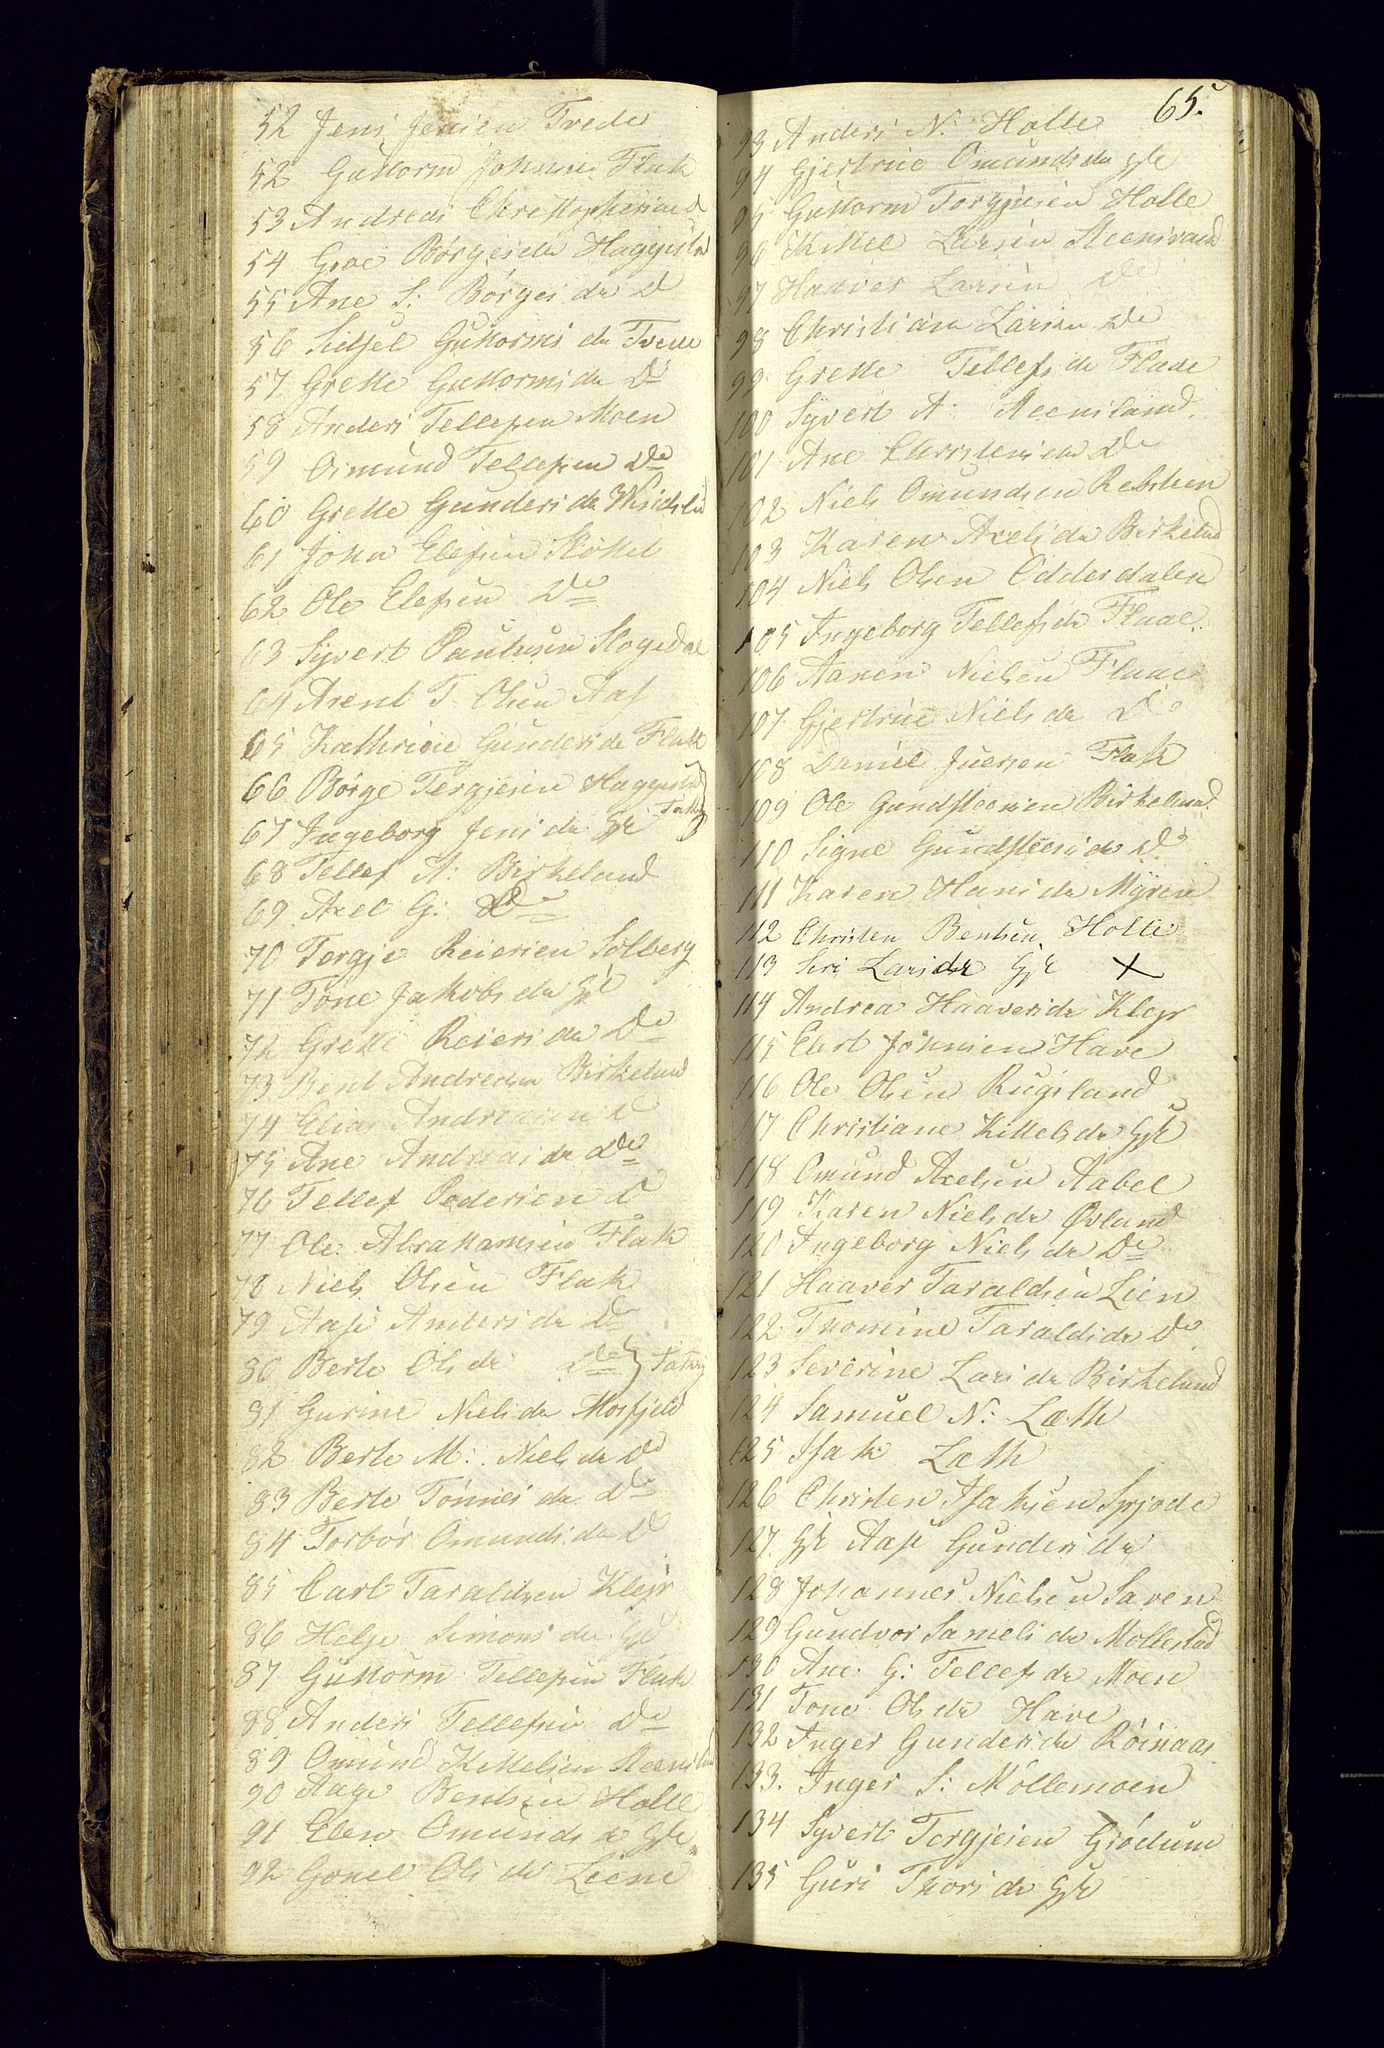 52 Jens Jensen Trede
52 Guttorm Johnsen Flak
53 Andreas Christophersen D
54 Groe Børgesdr Haggestad
55 Ane S: Børgesdr D
56 Sidsel Guttormsdr Trede
57 Grette Guttormsdr Do
58 Anders Tellefsen Moen
59 Osmund Tellefsen Do
60 Grette Gundersdr
61 John Elefsen Skottet
62 Ole Elefsen Do
63 Syvert Paulusen Slogedal
64 Arent T. Olsen Aas
65 Kathrine Gundersdr Flak
66 Børge Tergjesen Haggestad
67 Ingeborg Jensdr Gk 3
68 Tellef A: Birkeland
69 Axel G: Do
70 Tergje Reiersen Solberg
71 Tone Jakobsdr Gk
72 Grette Reiersdr Do
73 Bent Andreasen Birkeland
74 Elias Andreasen D
75 Ane Andreasdr Do
76 Tellef Pedersen D
77 Ole Abrahamsen Flak
78 Niels Olsen Flak
79 Aase Andersdr Do
80 Berte Olsdr Do
81 Gurine Nielsdr Mosfjeld
82 Berte M: Nielsdr Do
83 Berte Tønnesdr Do
84 Torbor Omundsdr D
85 Carl Taraldsen Klepr
86 Helje Simonsdr Gk
87 Guttorm Tellefsen Flak
88 Anders Tellefsen Do
89 Omund Kittelsen Steensland
90 Aage Bentsen Holte
91 Elen Omundsdr Gk
92 Gonel Olsdr Liene
65.
93 Anders N: Holte
94 Gjertrue Omundsdr Gk
95 Guttorm Torgjusen Holte
96 Kittel Larsen
97 Haaver Larsen Do
98 Christian Larsen Do
99 Grette Tellefsdr Flaae
100 Syvert A: Steensland
101 Ane Christensdr Do
102 Niels Omundsen Rebsteen
103 Karen Axelsdr Birkeland
104 Niels Olsen Odderdalen
105 Ingeborg Tellefsdr Flaae
106 Aanen Nielsen Flaae
107 Gjertrue Nielsdr Do
108 Daniel Juersen Flak
109 Ole Gundsteensen Birkeland
110 Signe Gundsteensdr Do
111 Karen Hansdr Myren
112 Christen Bentsen Holte
113 Siri Larsdr Gk X
114 Andrea Haaversdr Klepr
115 Elert Johnsen Have
116 Ole Olsen Rugsland
117 Christiane Kittelsdr Gk
118 Omund Axelsen Aabel
119 Karen Nielsdr Øvland
120 Ingeborg Nielsdr Do
121 Haaver Taraldsen Lien
122 Thomine Taraldsdr Do
123 Severine Larsdr Birkeland
124 Samuel N: Læth
125 Isak Læth
126 Christen Isaksen Spjode
127 Gk Aase Gundersdr
128 Johannes Nielsen Saven
129 Gundvor Samelsdr Mollestad
130 Ane G: Tellefsdr Moen
131 Tone Olsdr Have
132 Inger Gundersdr Röinaas
133. Inger S: Möllemoen
134 Syvert Tergjesen Grödum
135 Guri Thorsdr Gk